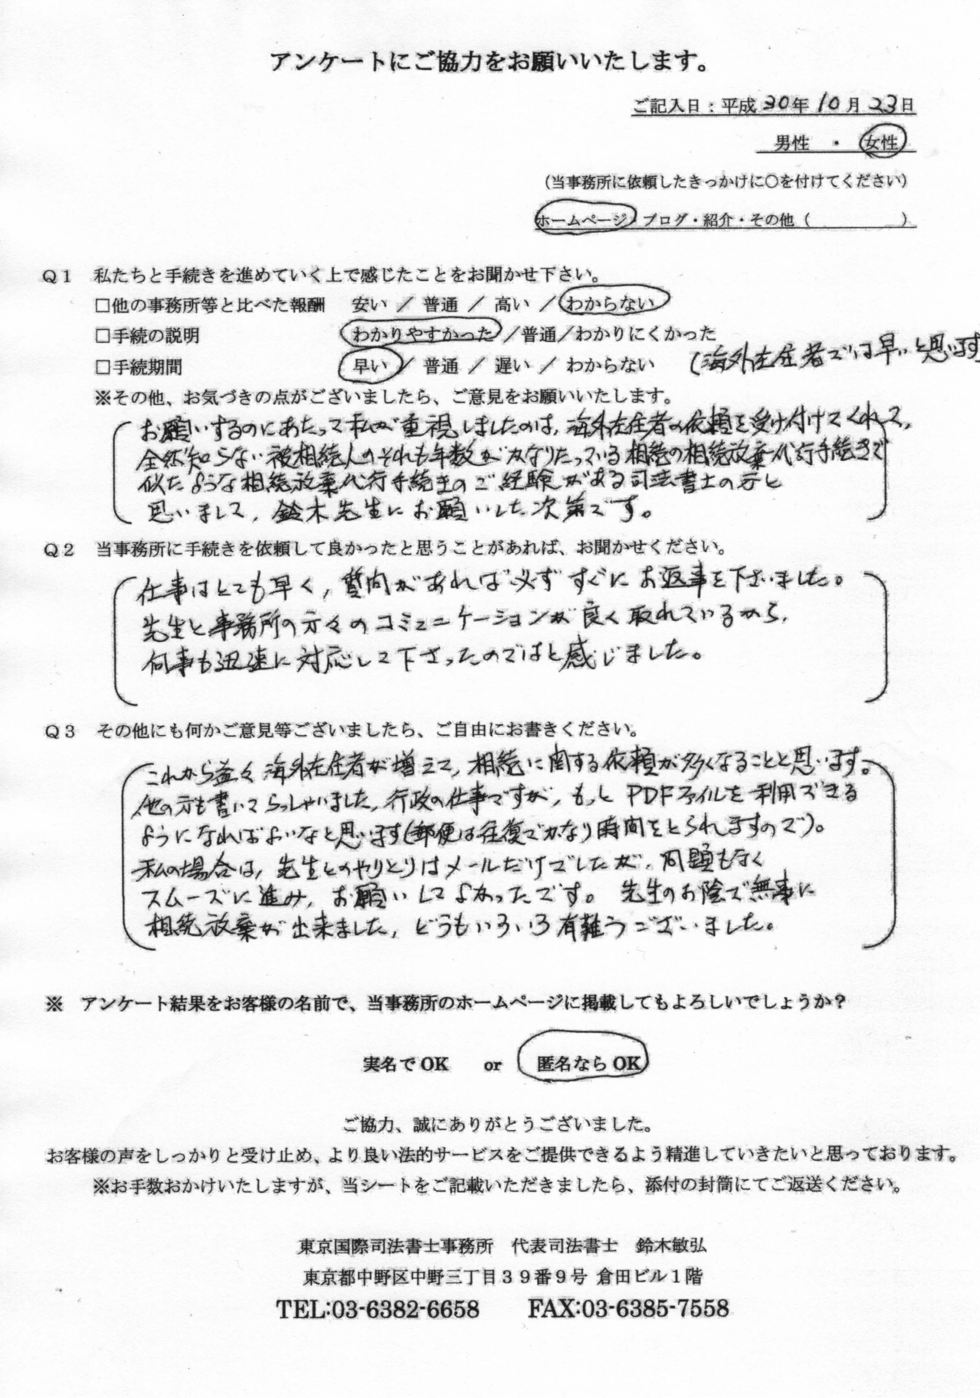 アンケートにご協力をお願いいたします。
ご記入日：平成30年10月23日
男性　・　女性
（当事務所に依頼したきっかけに〇を付けてください）
ホームページ・ブログ・紹介・その他（　　　　　）
Ｑ１　私たちと手続きを進めていく上で感じたことをお聞かせ下さい。
□他の事務所等と比べた報酬　安い ／ 普通 ／ 高い ／ わからない
□手続の説明　わかりやすかった ／普通／わかりにくかった
□手続期間　早い ／ 普通 ／ 遅い ／ わからない　（海外在住者では早いと思います
※その他、お気づきの点がございましたら、ご意見をお願いいたします。
お願いするのにあたって私が重視しましたのは、海外在住者の依頼を受け付けてくれて、
全然知らない被相続人のそれも年数がかなりたっている相続の相続放棄代行手続きで
似たような相続放棄代行手続きのご経験がある司法書士の方と
思いまして、鈴木先生にお願いした次第です。
Ｑ２　当事務所に手続きを依頼して良かったと思うことがあれば、お聞かせください。
仕事はとても早く，質問があれば必ずすぐにお返事を下さいました。
先生と事務所の方々のコミュニケーションが良く取れているから，
何事も迅速に対応して下さったのではと感じました。
Ｑ３　その他にも何かご意見等ございましたら、ご自由にお書きください。
これから益々海外在住者が増えて，相続に関する依頼が多くなることと思います。
他の方も書いてらっしゃいました，行政の仕事ですが，もっとPDFファイルを利用できる
ようになればよいなと思います（郵便は往復でかなり時間をとられますので）。
私の場合は，先生とのやりとりはメールだけでしたが，問題もなく
スムーズに進み，お願いしてよかったです。先生のお陰で無事に
相続放棄が出来ました，どうもいろいろ有難うございました。
※　アンケート結果をお客様の名前で、当事務所のホームページに掲載してもよろしいでしょうか？
実名でOK　or　匿名ならOK
ご協力、誠にありがとうございました。
お客様の声をしっかりと受け止め、より良い法的サービスをご提供できるよう精進していきたいと思っております。
※お手数おかけいたしますが、当シートをご記載いただきましたら、添付の封筒にてご返送ください。
東京国際司法書士事務所　代表司法書士　鈴木敏弘
東京都中野区中野三丁目３９番９号 倉田ビル１階
TEL:03-6382-6658　FAX:03-6385-7558